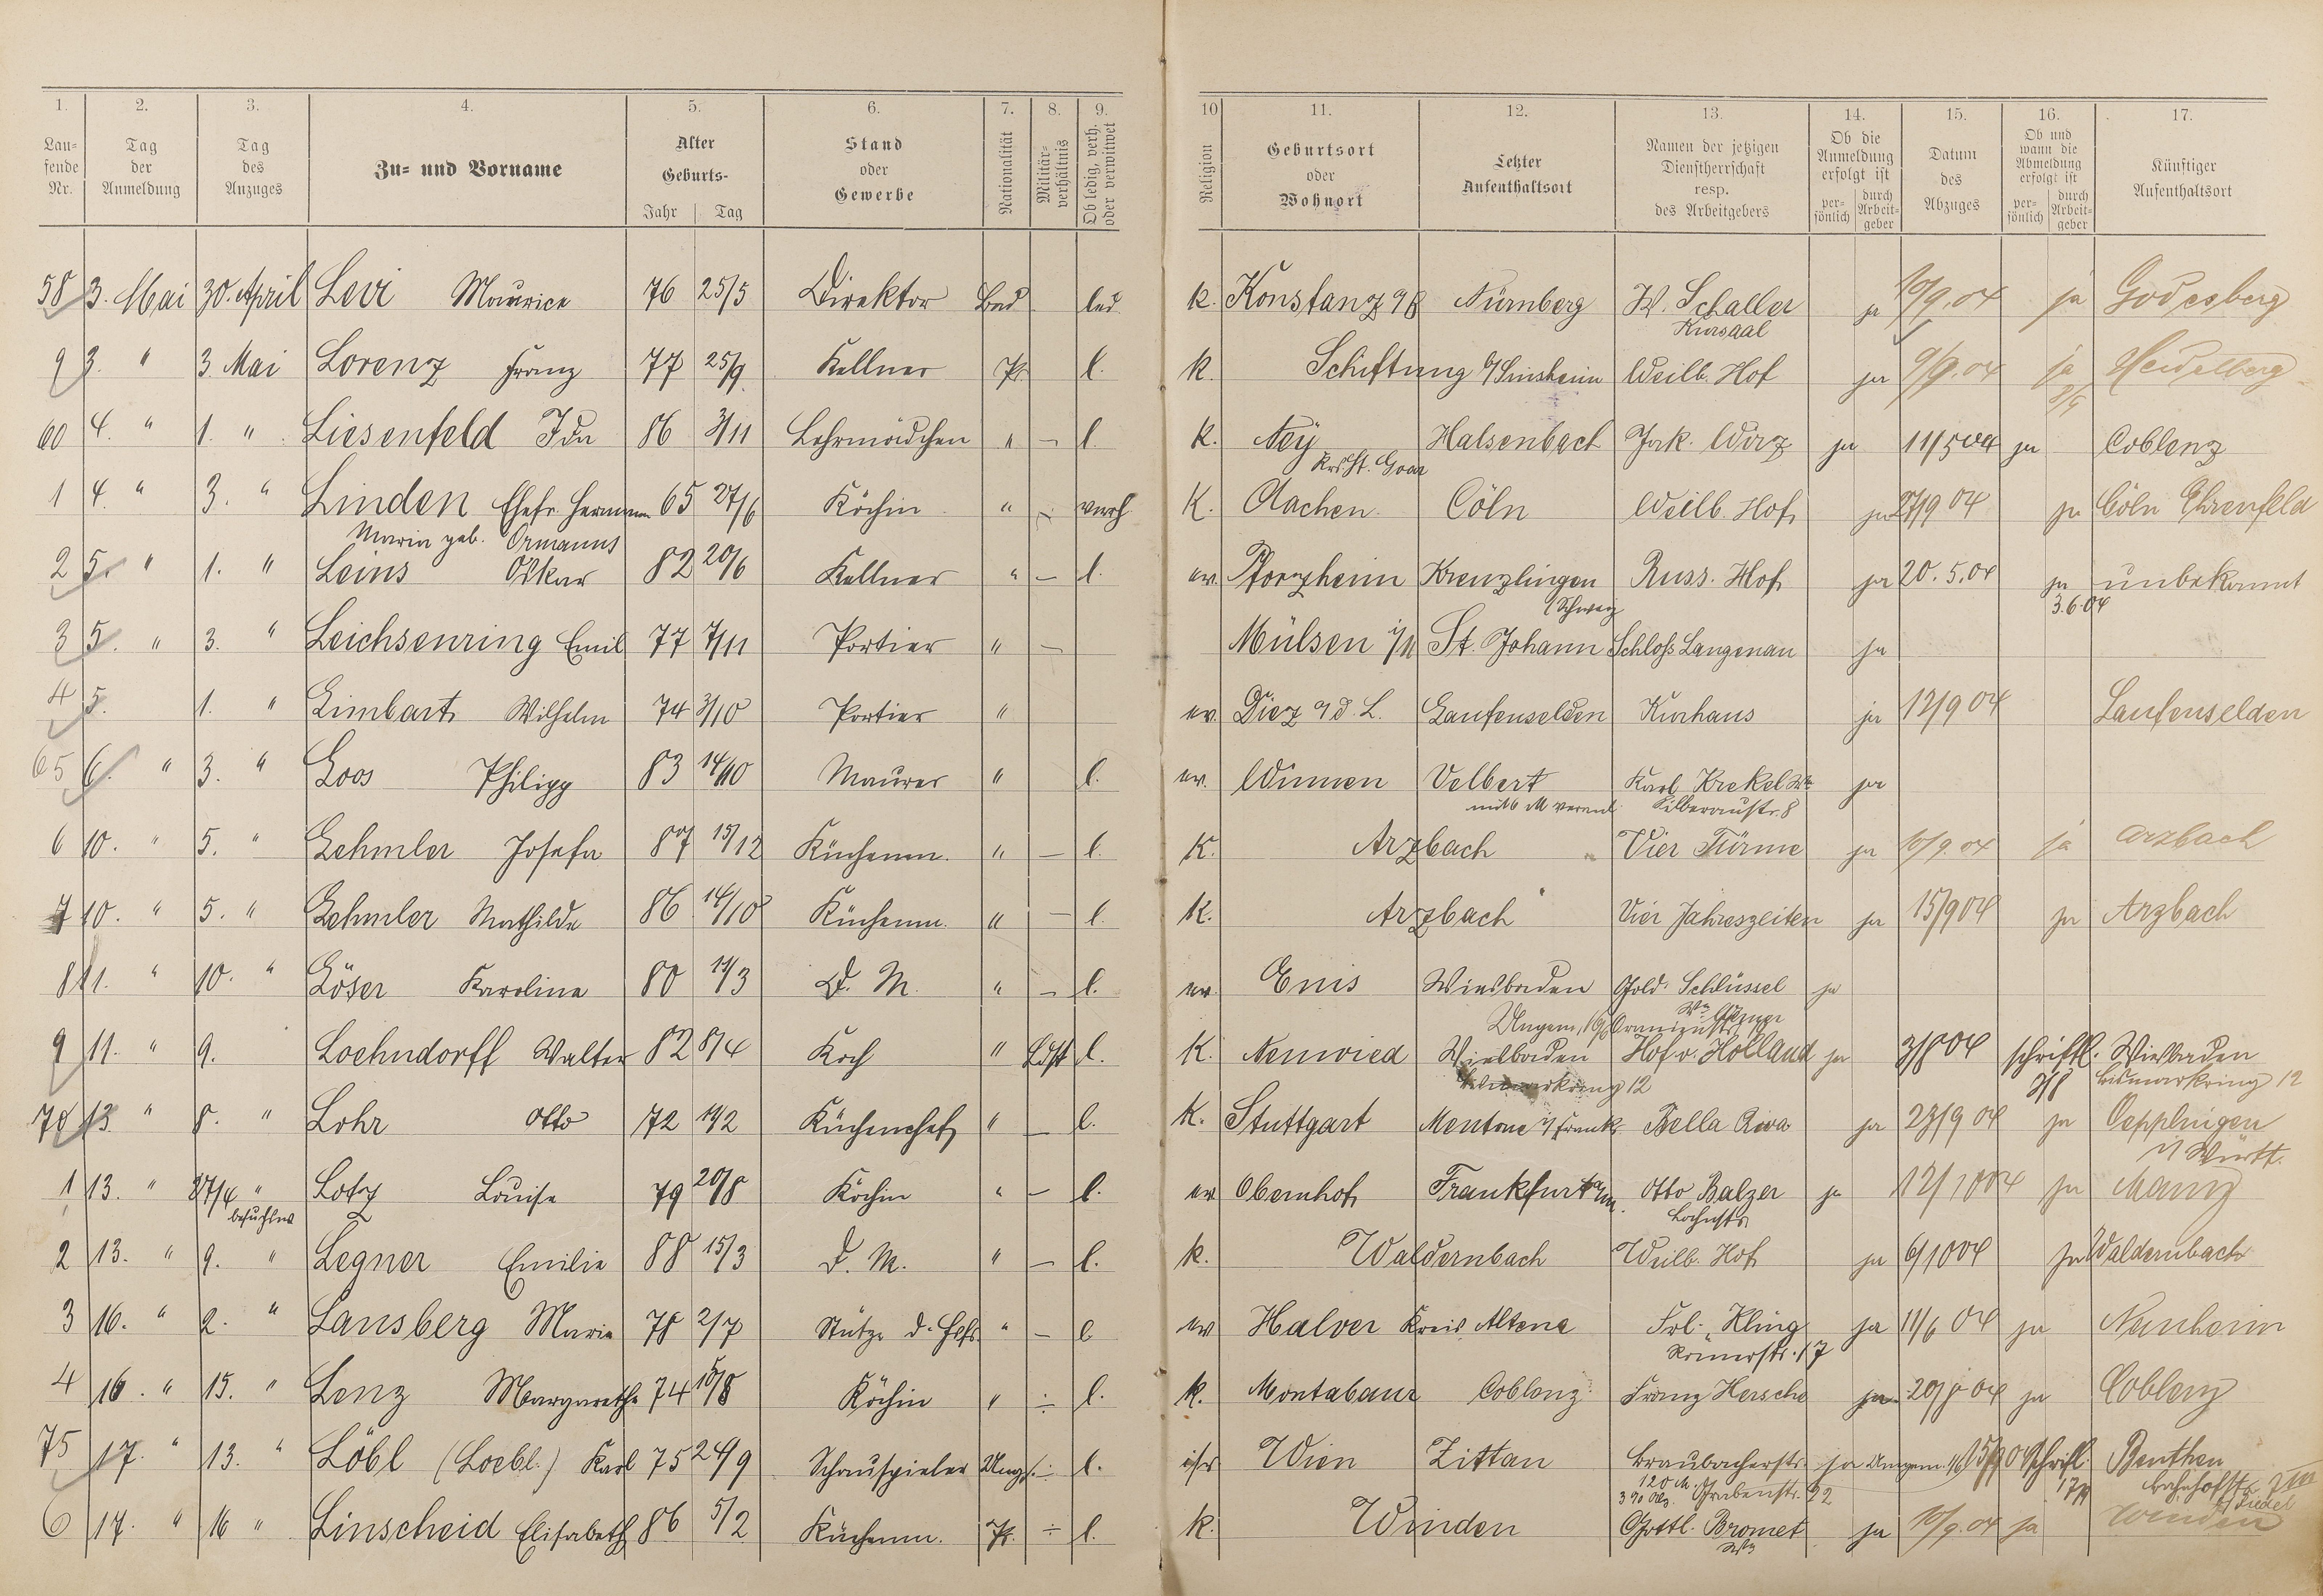 1. 2. 3. 4. 5. 6. 7. 8. 9. 10 11. 12. 13. 14. 15. 16. 17.
Lau=
fende
Nr.
Tag
der
Anmeldung
Tag
des
Anzuges
Zu= und Vorname
Alter
Geburts-
Jahr Tag
Stand
oder
Gewerbe
Nationalität
Militär-
verhältnis
Ob ledig, verh.
oder verwitwet
Religion
Geburtsort
oder
Wohnort
Letzter
Aufenthaltsort
Namen der jetzigen
Dienstherrschaft
resp.
des Arbeitgebers
Ob die
Anmeldung
erfolgt ist
per-
sönlich
durch
Arbeit-
geber
Datum
des
Abzuges
Ob und
wann die
Abmeldung
erfolgt ist
per-
sönlich
durch
Arbeit-
geber
Künftiger
Aufenthaltsort
58 3. Mai 30. April Levi Maurice 76 25/5 Direktor Bad led. k. Konstanz Nürnberg W. Schaller ja 10/9.04 ja Godesberg
Kursaal
9 3. " 3. Mai Lorenz Franz 77 25/9 Kellner Pr. l. k. Schiftung b/Sinsheim Weilb. Hof ja 9/9.04 ja Heidelberg
60 4. " 1. " Liesenfeld Ida 86 3/11 Lehrmädchen " – l. k. Ney Halsenbach Jak. Wirz ja 11/5 04 ja Coblenz
Krs St. Goar
1 4. " 3. " Linden Ehefr. Hermann 65 27/6 Köchin " verh K. Aachen Cöln Weilb. Hof ja 27/9 04 ja Cöln Ehrenfeld
Maria geb. Ormanns
2 5. " 1. " Leins Oskar 82 20/6 Kellner " – l. ev. Pforzheim Kreuzlingen Russ. Hof ja 20.5.04 ja unbekannt
Schweiz 3.6.04
3 5. " 3. " Leichsenring Emil 77 7/11 Portier " – Mülsen St. Johann Schloß Langenau ja
4 5. 1. " Limbart Wilhelm 74 3/10 Portier " ev. Diez a d. L. Laufenselden Kurhaus ja 12/9 04 Laufenselden
65 6. " 3. " Loos Philipp 83 14/10 Maurer " l. ev. Winnen Velbert Karl Krekel We ja
Silberaustr. 8
6 10. " 5. " Lehmler Josefa 87 15/12 Küchenm. " – l. K. Arzbach Vier Türme ja 10/9.04 ja Arzbach
7 10. " 5. " Lehmler Mathilde 86 14/10 Küchenm. " – l. K. Arzbach Vier Jahreszeiten ja 15/9 04 ja Arzbach
8 11. " 10. " Löser Karoline 80 11/3 D. M. " – l. ev. Ems Wiesbaden Gold. Schlüssel ja
9 11. " 9. Loehndorff Walter 82 8/4 Koch " l. K. Neuwied Wiesbaden Hof v. Holland ja 3/8 04 schriftl. Wiesbaden
Bismarkring 12 Bismarkring 12
70 13 " 8. " Lohr Otto 72 11/2 Küchenchef " – l. K. Stuttgart Mentone i/Frank. Bella Riva ja 27/9 04 ja Oepplingen
i/ Württ.
1 13. " 27/4 " Lotz Louise 79 20/8 Köchin " – l. ev Obernhof Frankfurt a/M. Otto Balzer ja 12/10 04 ja Mainz
2 13. " 9. " Legner Emilie 88 15/3 D. M. " – l. k. Waldernbach Weilb. Hof ja 6/10 04 ja Waldernbach
3 16. " 2. " Lansberg Maria 78 2/7 Stütze d. Hsfr. " – l ev Halver Kreis Altena Frl. Kling ja 11/6 04 ja Neuheim
Römerstr. 17
4 16. " 15. " Lenz Margarethe 74 15/8 Köchin " l. k. Montabaur Coblenz Franz Hersche ja 20/8 04 ja Coblenz
75 17. " 13. " Löbl (Loebl.) Karl 75 24/9 Schauspieler Ung. l. isr Wien Zittau Braubacherstr. ja Schriftl. Beuthen
Grabenstr. 22 Bahnhofstr.
6 17. " 16 " Linscheid Elisabeth 86 5/2 Küchenm. Pr. l. k. Winden Gottl. Bromet ja 10/9.04 ja Winden